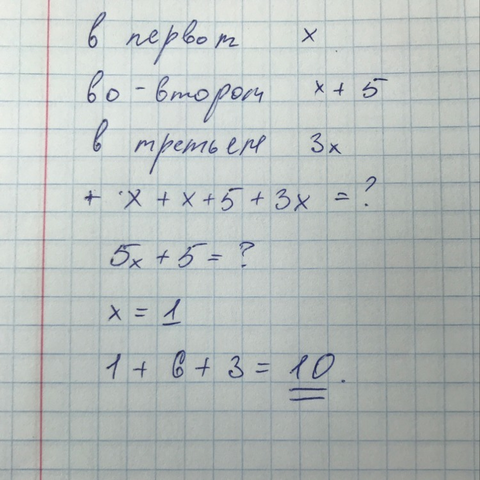 в первом x
во-втором x + 5
в третьем 3x
+ x + x + 5 + 3x = ?
5x + 5 = ?
x = 1
1 + 6 + 3 = 10.